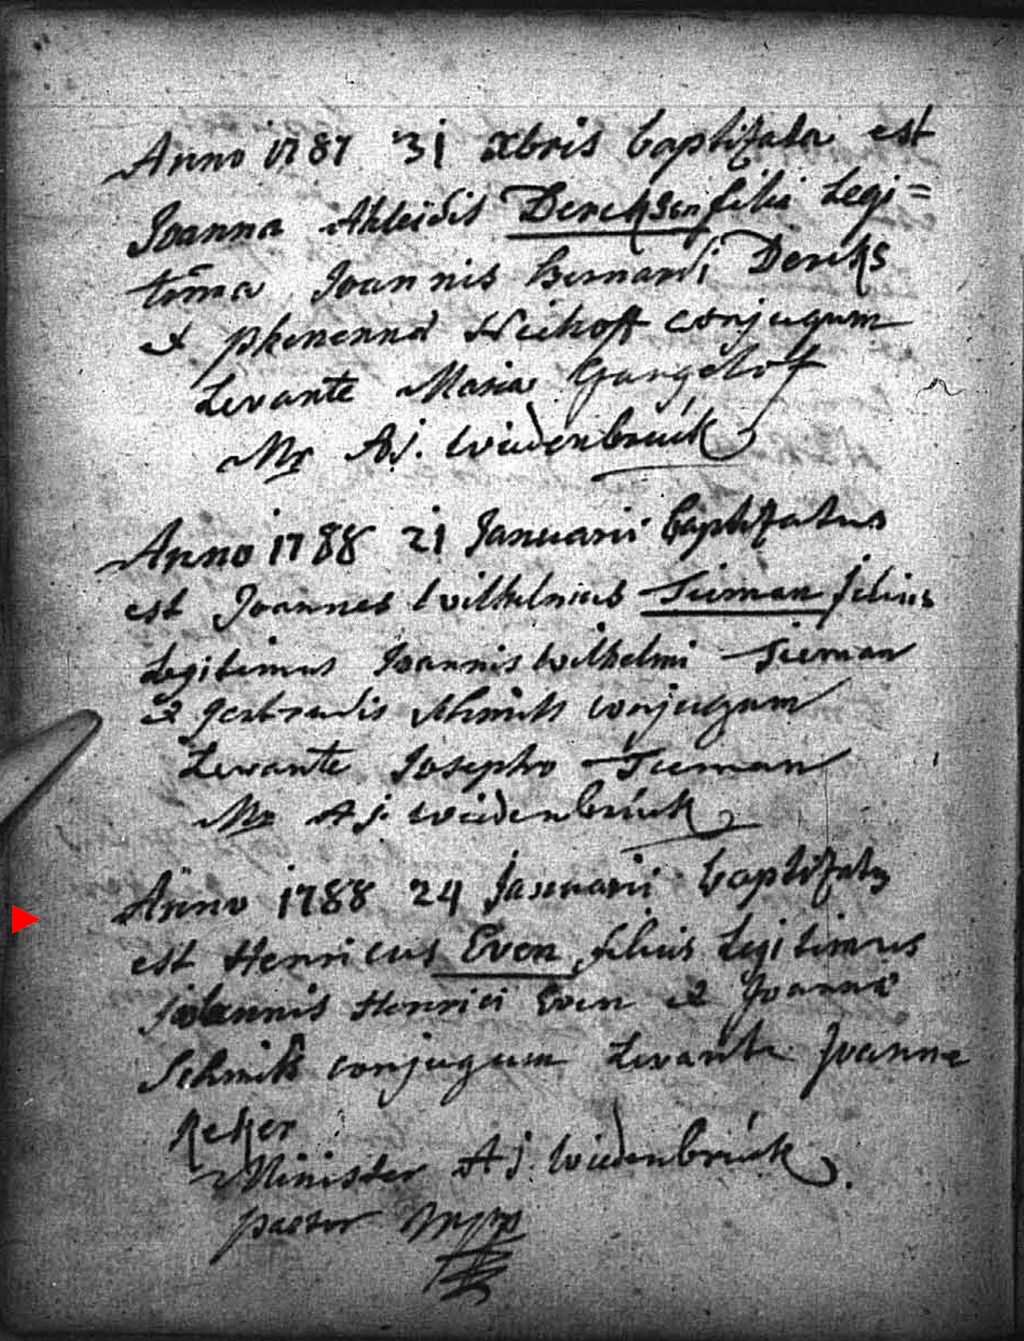 Anno 1787 31 xbris baptizata est
Joanna Aleidis Dercksen filia Legi=
tima Joannis Bernardi Dercks
et phenenna Niehoff conjugum
Levante Maria Gangelhof
Mr A.j. Wiedenbrück
Anno 1788 21 Januarii baptizatus
est Joannes Wilhelmus Tieman filius
Legitimus Joannis Wilhelmi Tieman
et gertrudis Schmitt conjugum
Levante Josepho Tieman
Mr A j. Wiedenbrück
Anno 1788 24 Januarii baptizatus
est Henricus Even filius Legitimus
Joannis Henrici Even et Joanna
Schmitt conjugum Levante Joanne
Reker
Minister A j. Wiedenbrück.
pastor mpp